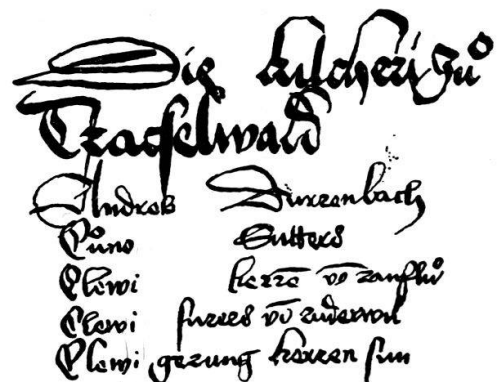 Die kilcheri zů
Trachselwald
Andres Durrenbach
Cůno Sutters
Clewi herre vō ranflů
Clewi furers vō
Clewi gerung herren sun